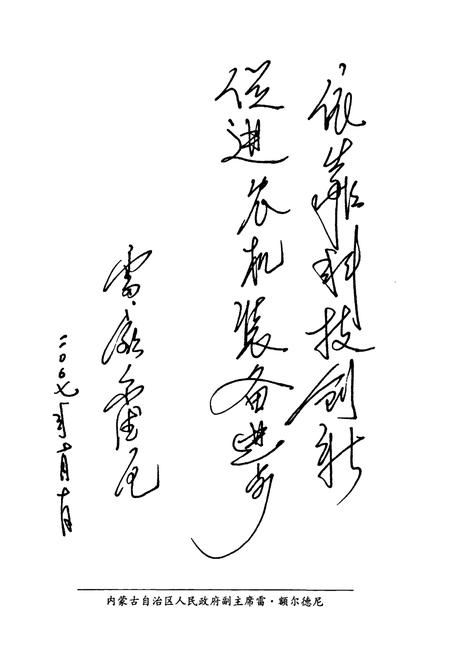 依靠科技创新
促进农机装备进步
雷·额尔德尼
二〇〇七年十月十日
内蒙古自治区人民政府副主席雷·额尔德尼